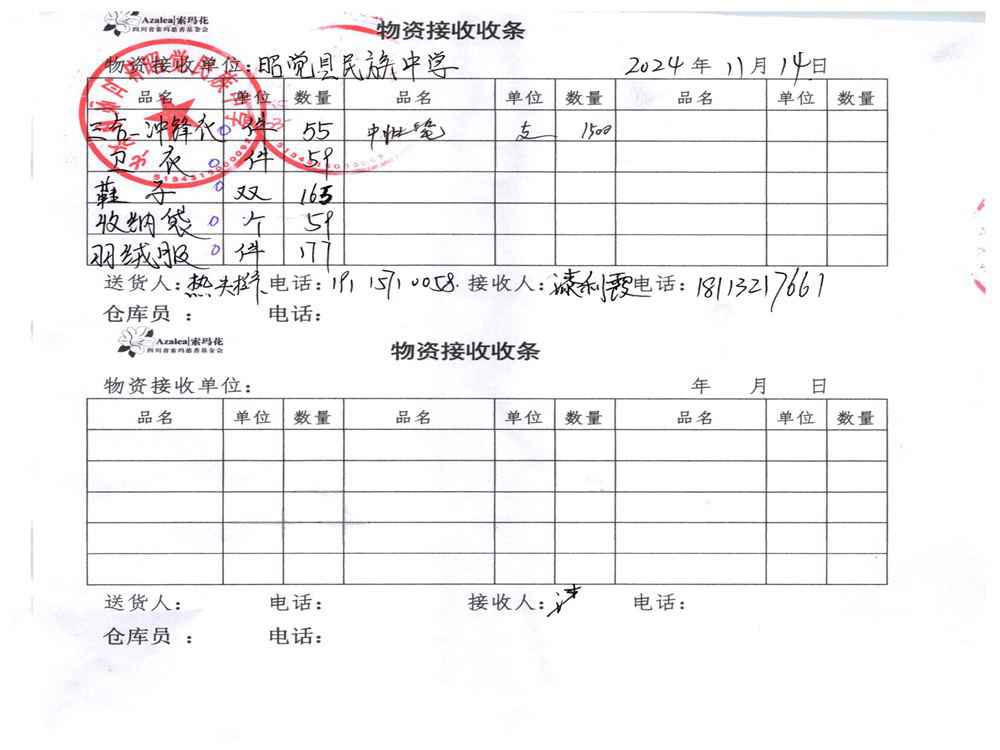 Azalea|索玛花
四川省索玛慈善基金会
物资接收收条
物资接收单位：昭觉县民族中学 2024年11月14日
品名 单位 数量 品名 单位 数量 品名 单位 数量
三合一冲锋衣 件 55 中性笔 支 1500
卫衣 件 59
鞋子 双 165
收纳袋 个 59
羽绒服 件 177
送货人： 电话：191 5710058. 接收人：漆利霞 电话：18113217661
仓库员： 电话：
Azalea|索玛花
四川省索玛慈善基金会
物资接收收条
物资接收单位： 年 月 日
品名 单位 数量 品名 单位 数量 品名 单位 数量
送货人： 电话： 接收人： 电话：
仓库员： 电话：